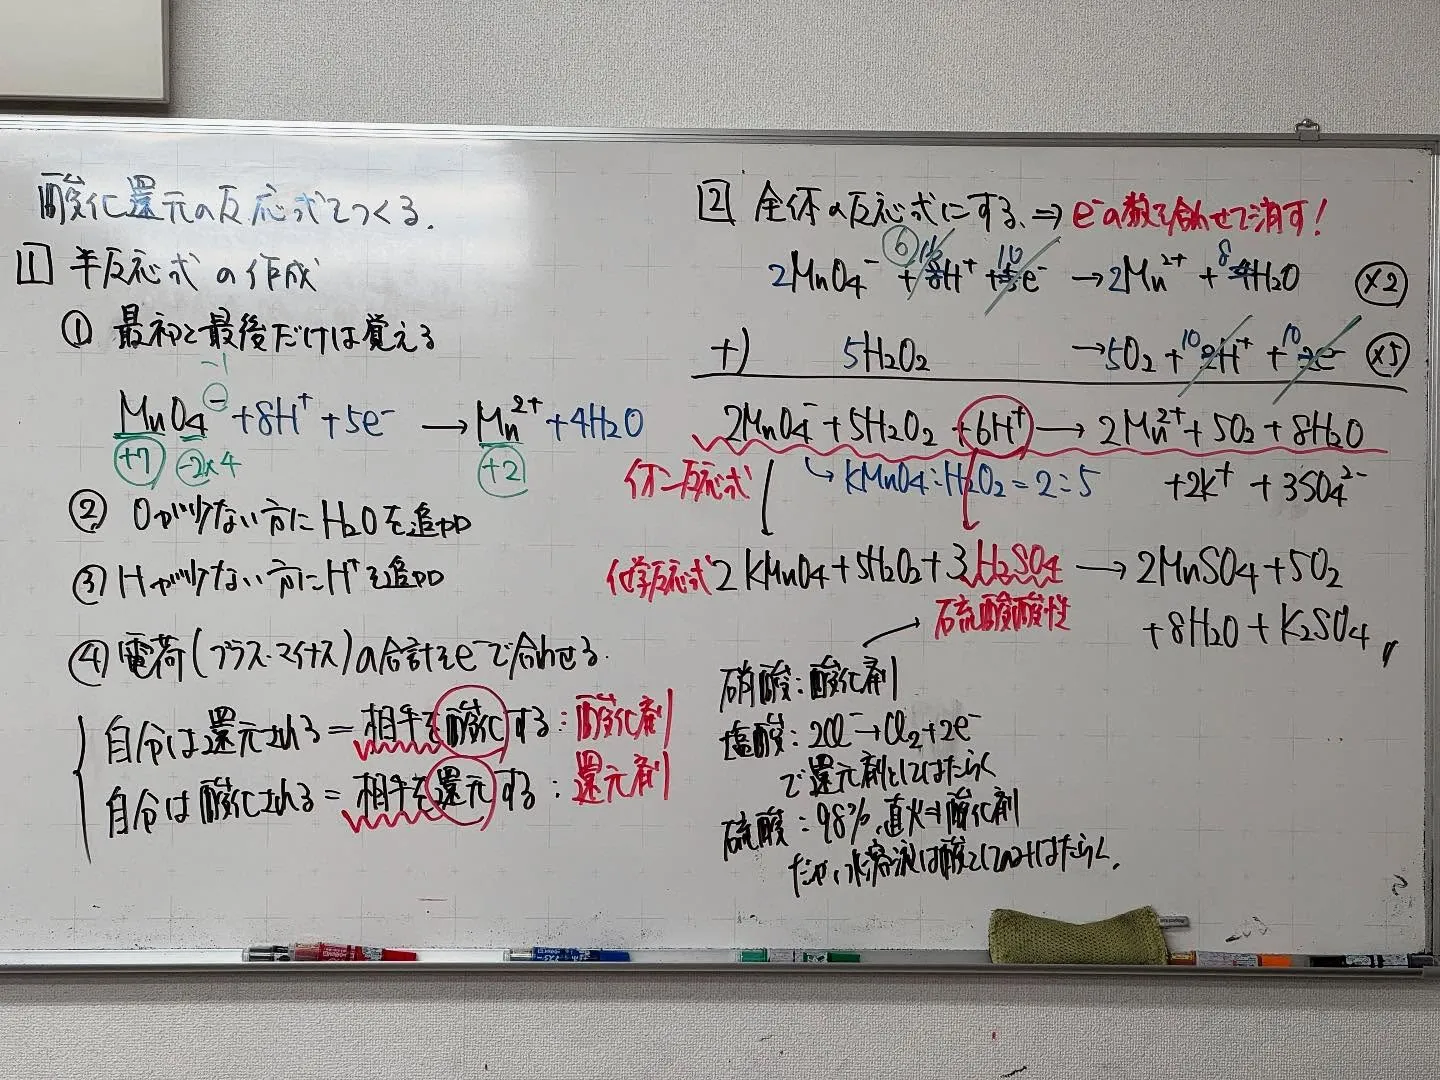 酸化還元の反応式をつくる.
1 半反応式の作成
① 最初と最後だけは覚える
-1
MnO4⁻ +8H⁺ +5e⁻ → Mn²⁺ +4H2O
+7 -2×4 +2
② Oが少ない方にH2Oを追加
③ Hが少ない方にH⁺を追加
④ 電荷(プラス・マイナス)の合計をe⁻で合わせる.
自分は還元される=相手を酸化する:酸化剤
自分は酸化される=相手を還元する:還元剤
2 全体の反応式にする. ⇒ e⁻の数を合わせて消す!
6 16 10 8
2MnO4⁻ + 8H⁺ + 5e⁻ → 2Mn²⁺ + 4H2O ×2
10 10
+) 5H2O2 → 5O2 + 2H⁺ + 2e⁻ ×5
2MnO4⁻ + 5H2O2 + 6H⁺ → 2Mn²⁺ + 5O2 + 8H2O
イオン反応式 ↳ KMnO4:H2O2=2:5 +2K⁺ + 3SO4²⁻
化学反応式 2KMnO4+5H2O2+3H2SO4 → 2MnSO4+5O2
硫酸酸性 +8H2O+K2SO4
硝酸:酸化剤
塩酸:2Cl⁻→Cl2+2e⁻
で還元剤としてはたらく
硫酸:98%,直火⇒酸化剤
だが,水溶液は酸としてのみはたらく.